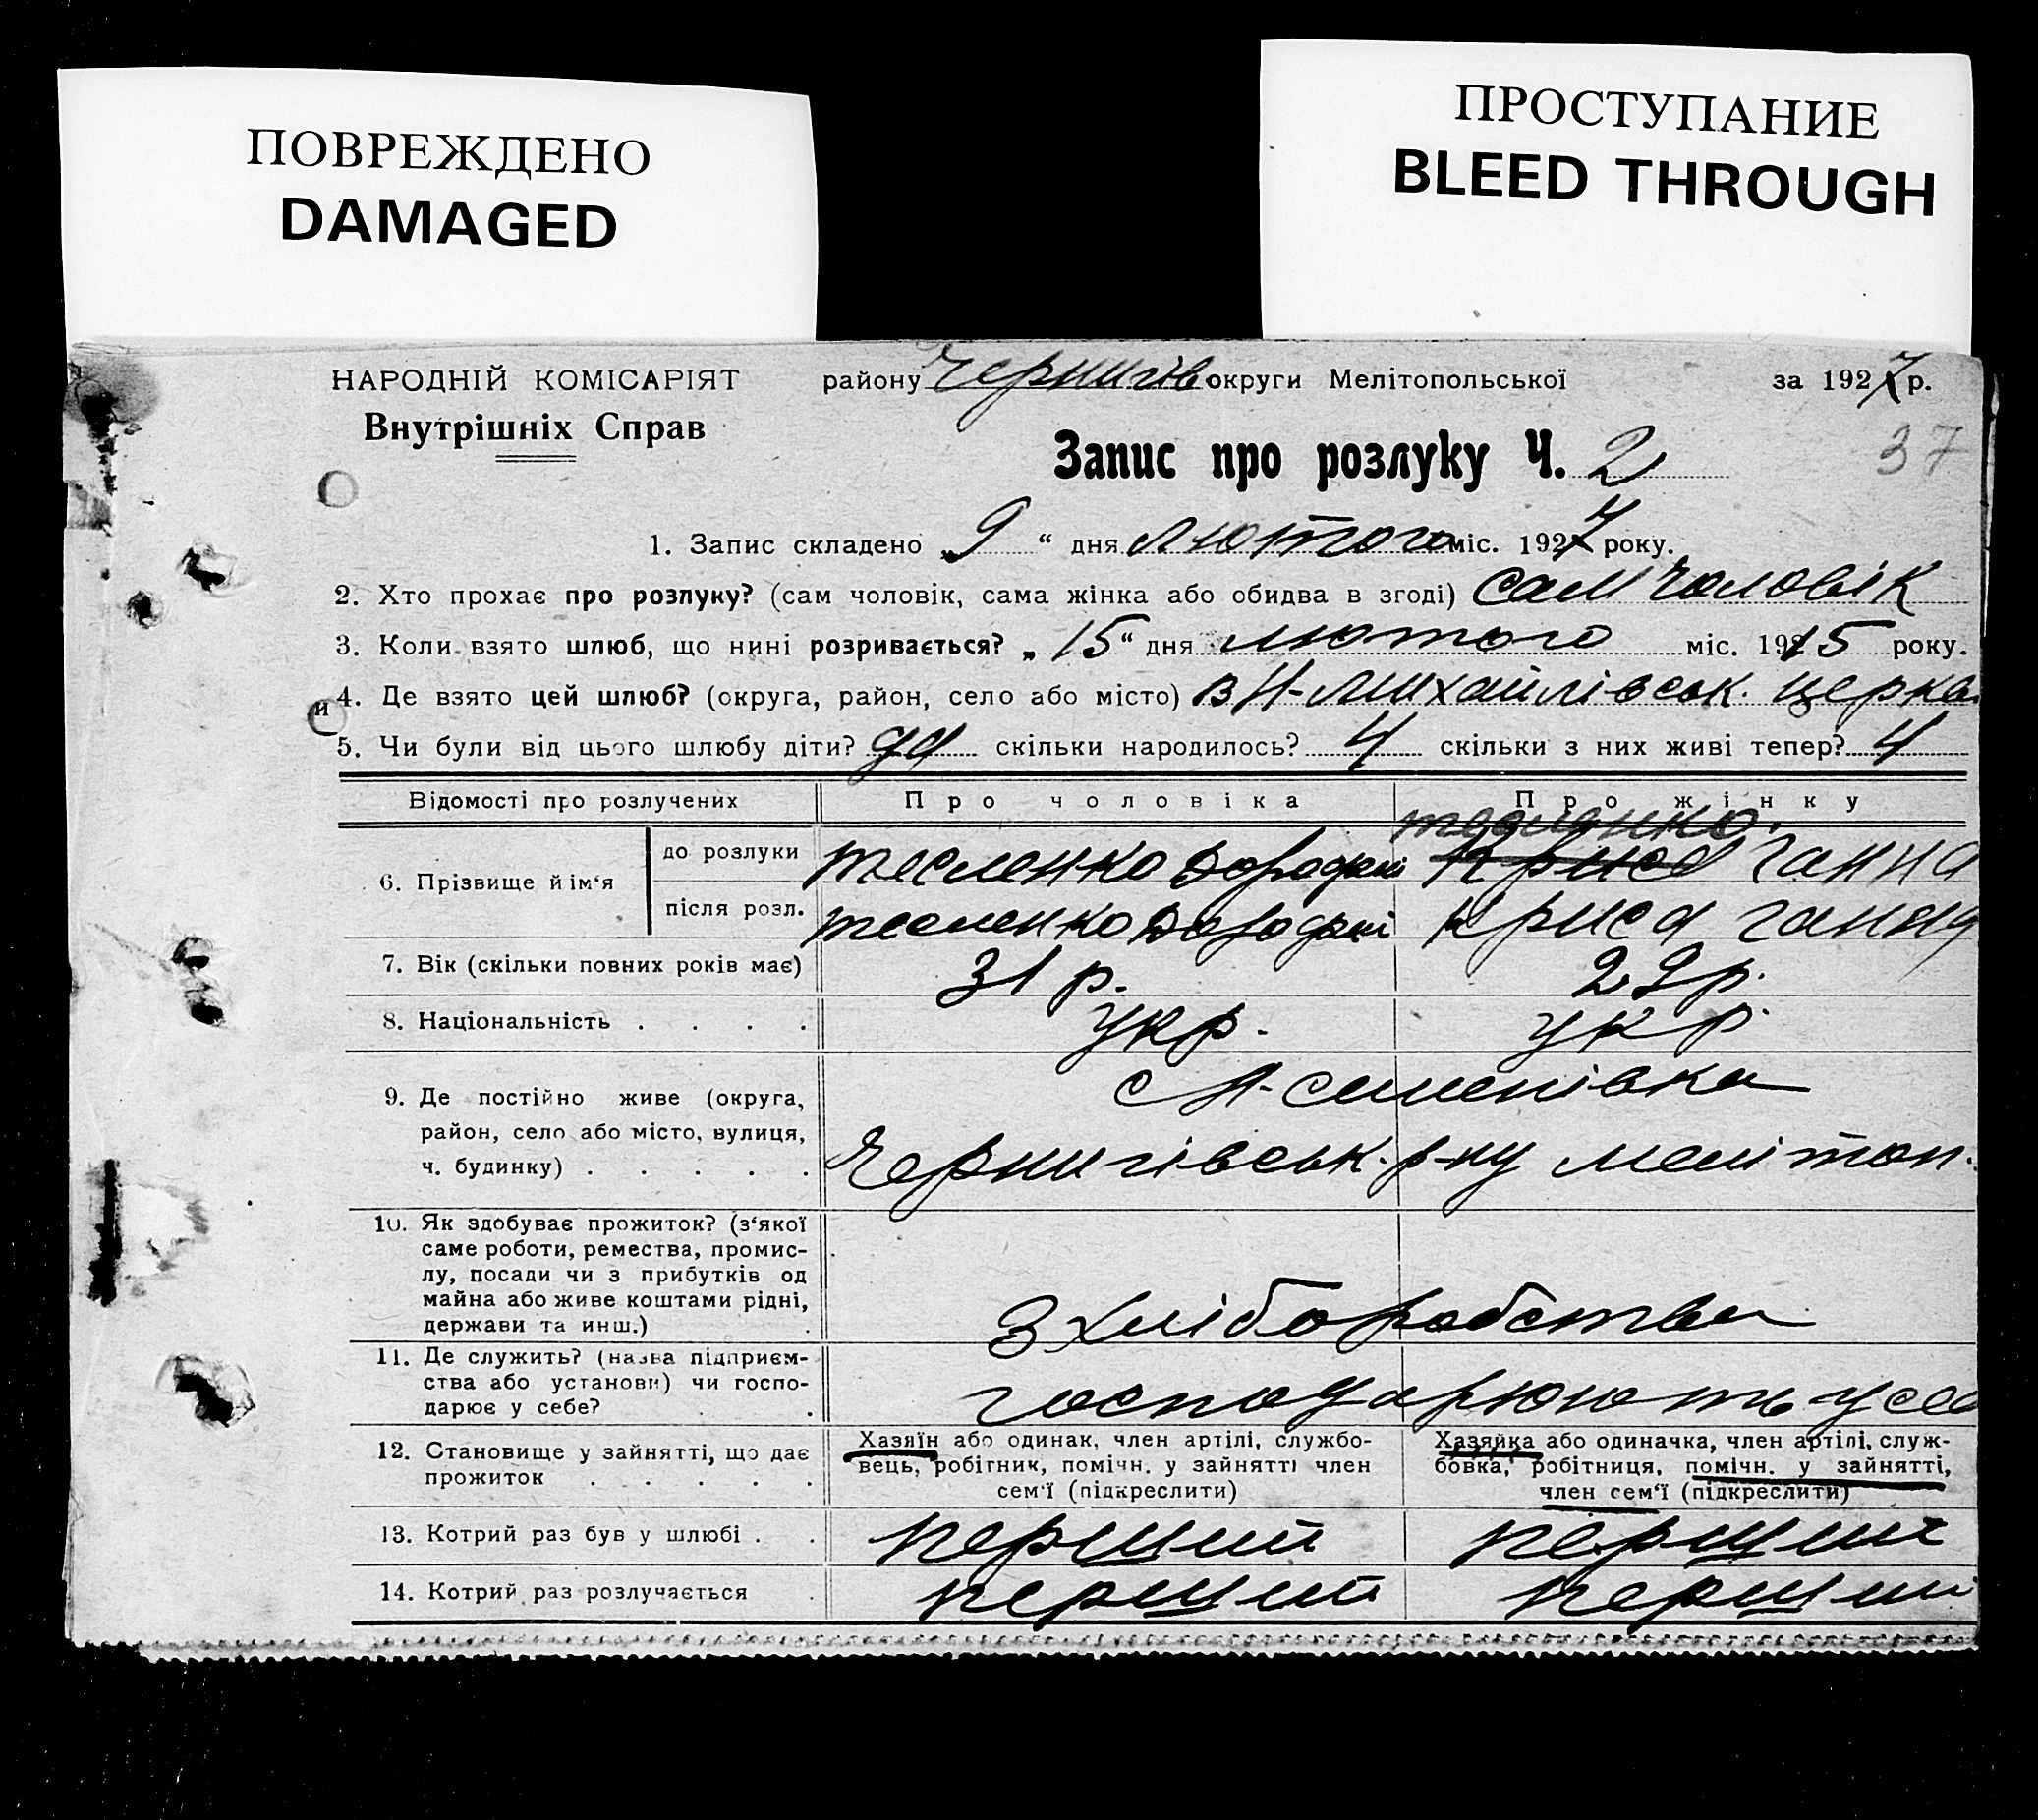 ПОВРЕЖДЕНО
DAMAGED
ПРОСТУПАНИЕ
BLEED THROUGH
НАРОДНІЙ КОМІСАРІЯТ
Внутрішніх Справ
району Чернигів округи Мелітопольської за 1927 р.
Запис про розлуку Ч. 2
37
1. Запис складено „9“ дня лютого міс. 1927 року.
2. Хто прохає про розлуку? (сам чоловік, сама жінка або обидва в згоді) сам чоловік
3. Коли взято шлюб, що нині розривається? „15“ дня лютого міс. 1915 року.
4. Де взято цей шлюб? (округа, район, село або місто) в Н-Михайлівськ. церкв
5. Чи були від цього шлюбу діти? да скільки народилось? 4 скільки з них живі тепер? 4
Відомості про розлучених Про чоловіка Про жінку
тесленко.
6. Прізвище й ім‘я до розлуки Тесленко Дорофей Криса Ганна
після розл. Тесленко Дорофей Криса Ганна
7. Вік (скільки повних років має) 31 р. 29 р.
8. Національність . . . . укр. укр.
9. Де постійно живе (округа, район, село або місто, вулиця, ч. будинку) . . . . .
с Н-Семенівка
Чернигівськ. р-ну Мелітоп.
10. Як здобуває прожиток? (з‘якої
саме роботи, ремества, промис-
лу, посади чи з прибутків од
майна або живе коштами рідні,
держави та инш.)
З хліборобства
11. Де служить? (назва підприєм-
ства або установи) чи госпо-
дарює у себе?
господарюють у себе
12. Становище у зайнятті, що дає
прожиток . . . . .
Хазяїн або одинак, член артілі, службо-
вець, робітник, помічн. у зайнятті член
сем‘ї (підкреслити)
Хазяйка або одиначка, член артілі, служ-
бовка, робітниця, помічн. у зайнятті,
член сем‘ї (підкреслити)
13. Котрий раз був у шлюбі . . перший перший
14. Котрий раз розлучається . перший перший